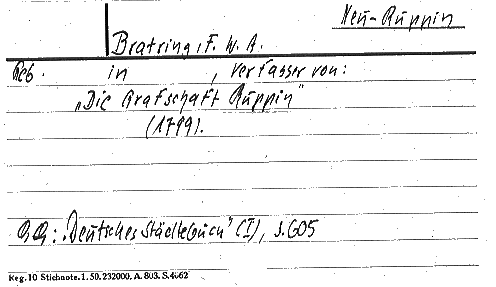 Neu-Ruppin
Bratring, F. W. A.
Geb. in , Verfasser von:
„Die Grafschaft Ruppin"
(1799).
QQ: „Deutsches Städtebuch" (I), S. 605
Reg. 10 Stichnote. 1. 50. 232000. A. 803. S. 4662